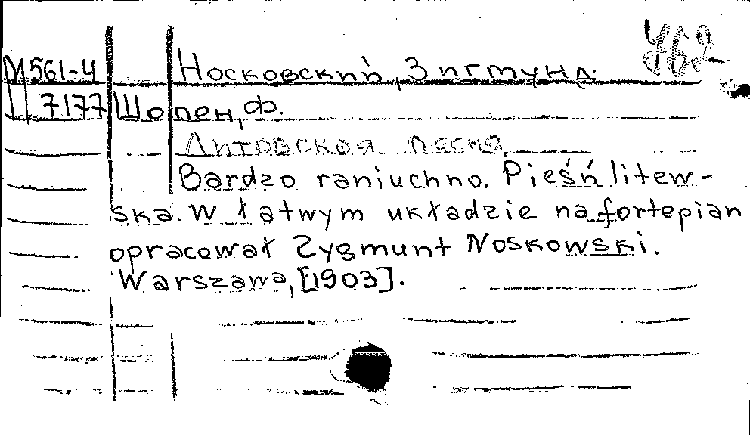 М 561-4 Носковский, Зигмунд. 462
7177 Шопен, Ф.
Литовская песня
Bardzo raniuchno. Pieśń litew-
ska. W łatwym układzie na fortepian
opracował Zygmunt Noskowski.
Warszawa, [1903].